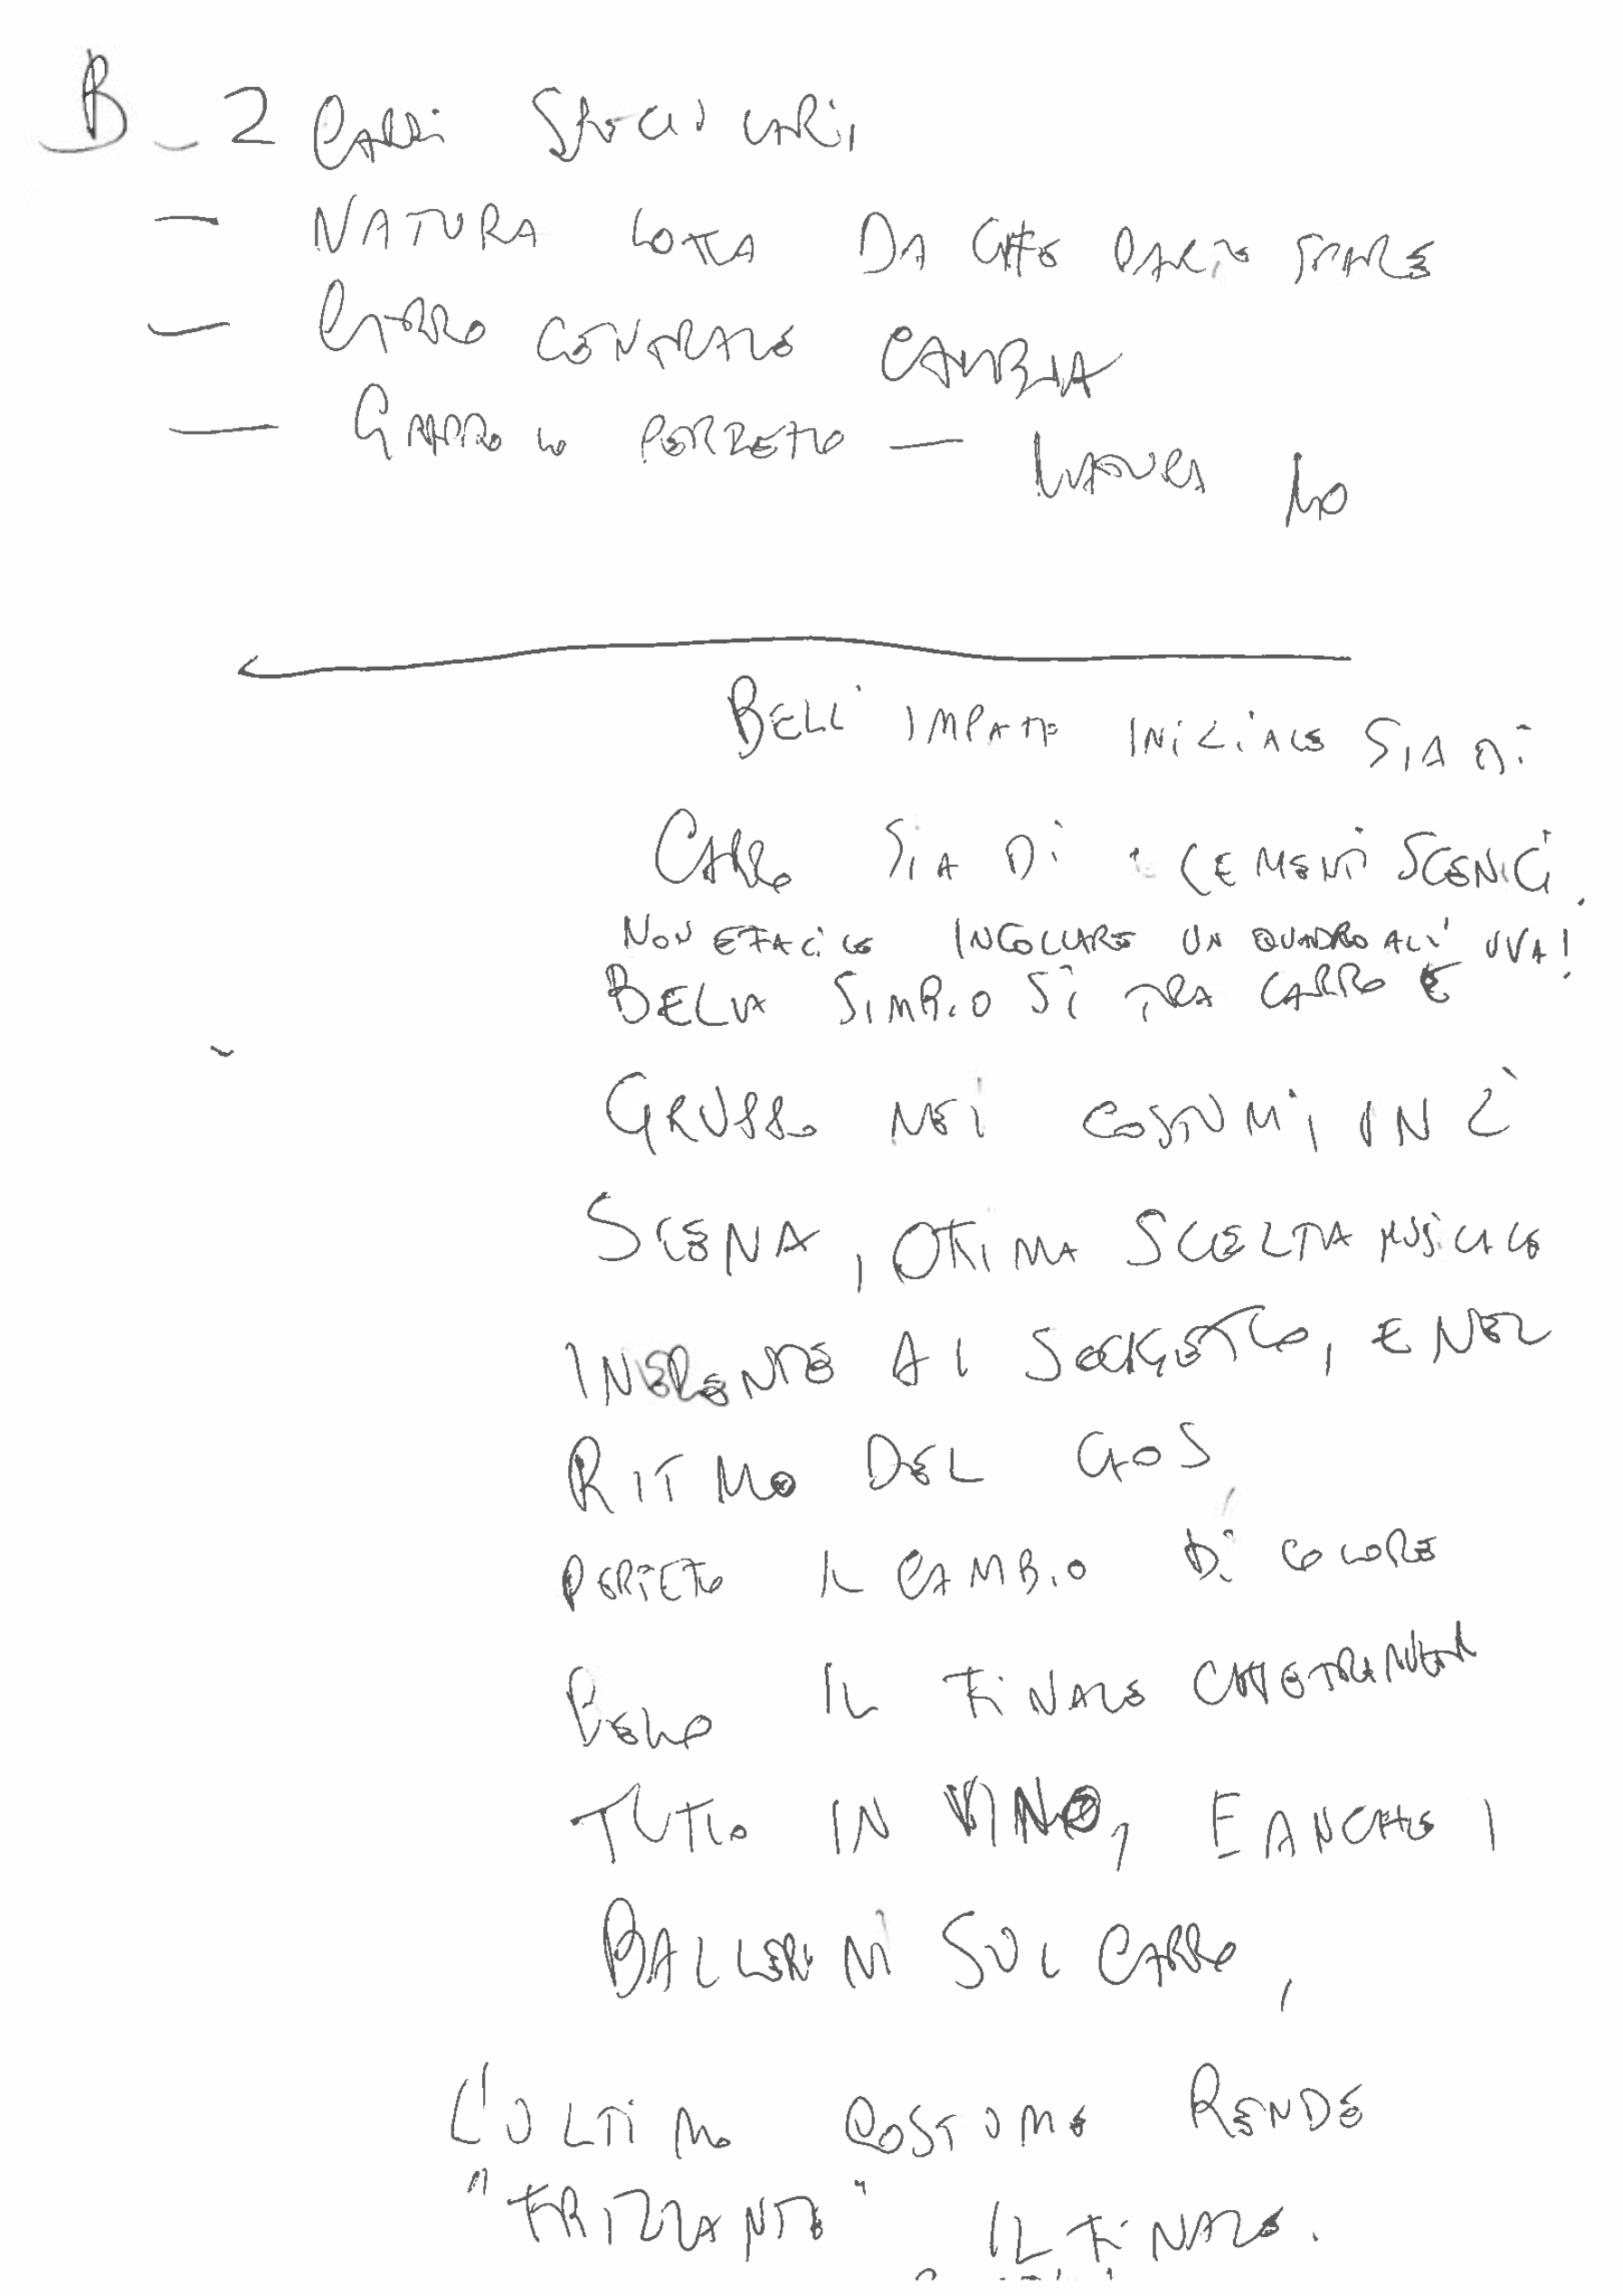 B - 2 CARRI SPECULARI
- NATURA LOTTA DA CHE PARTE STARE
- CARRO CENTRALE CAMBIA
- PERFETTO - NATURA NO
BELL'IMPATTO INIZIALE SIA DI
CARRO SIA DI ELEMENTI SCENICI.
NON E FACILE INCOLLARE UN QUADRO ALL'UVA!
BELLA SIMBIOSI TRA CARRO E
GRUPPO NEI COSTUMI, IN
SCENA, OTTIMA SCELTA MUSICALE
INERENTE AL SOGGETTO, E NEL
RITMO DEL
PERFETTO IL CAMBIO DI COLORE
BELLO IL FINALE CHE TRAMUTA
TUTTO IN VINO, E ANCHE I
BALLERINI SUL CARRO,
L'ULTIMO COSTUME RENDE
"FRIZZANTE" IL FINALE.